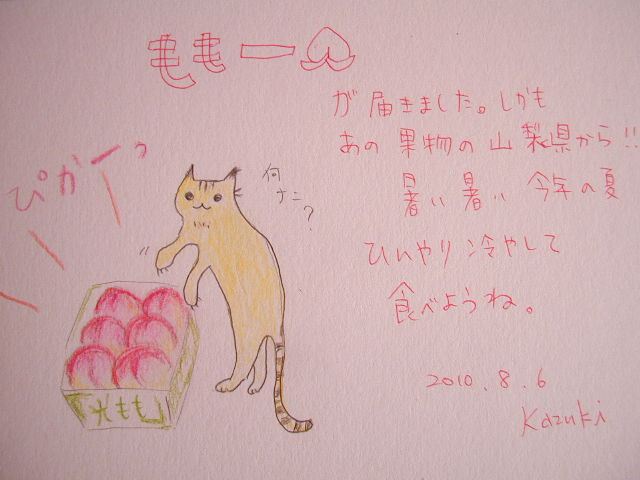 ももー
が届きました。しかも
あの果物の山梨県から!!
暑い暑い今年の夏
ひんやり冷やして
食べようね。
2010.8.6
Kazuki
ぴかーっ
何ナニ?
「光もも」